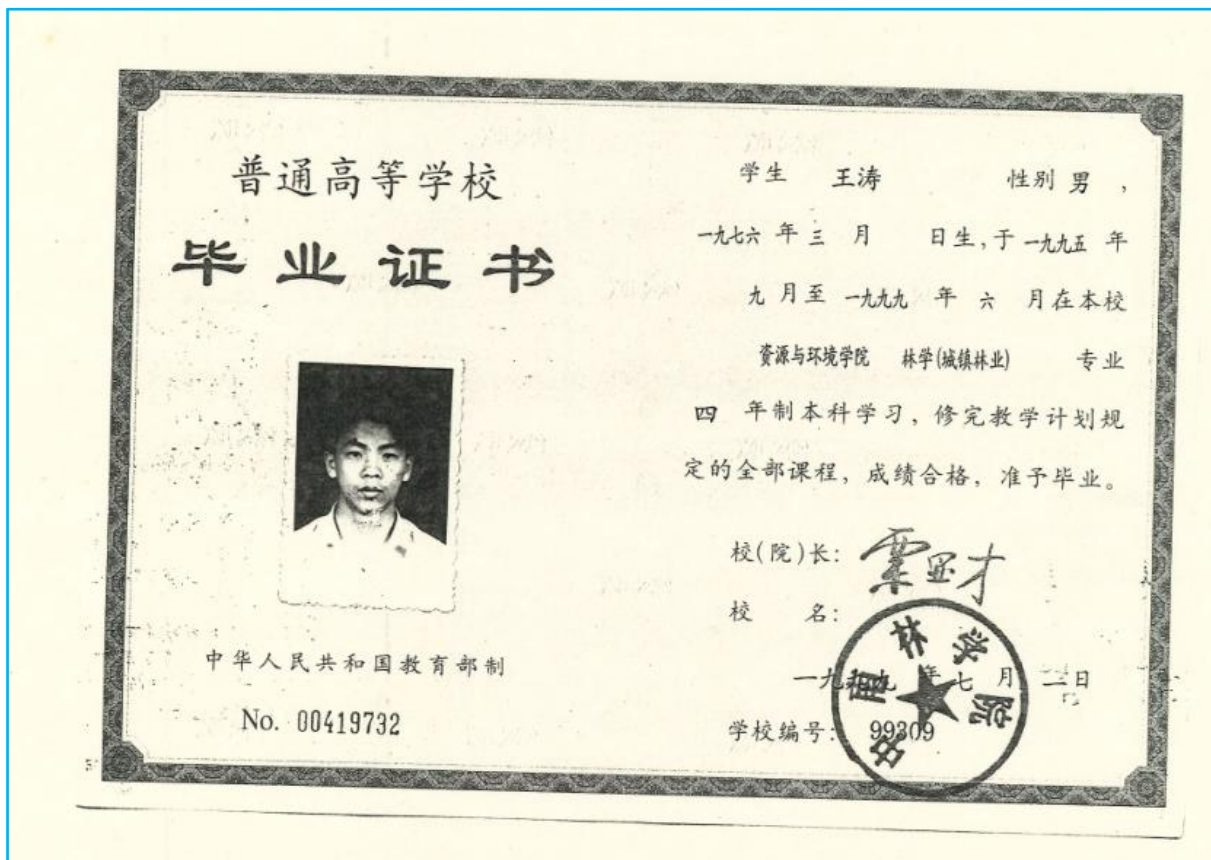 普通高等学校
毕业证书
中华人民共和国教育部制
No. 00419732
学生 王涛 性别 男 ,
一九七六 年 三 月 日生,于 一九九五 年
九 月至 一九九九 年 六 月在本校
资源与环境学院 林学(城镇林业) 专业
四 年制本科学习,修完教学计划规
定的全部课程,成绩合格,准予毕业。
校(院)长:
校 名:
中南林学院
一九九九 年 七 月 二日
学校编号: 99309